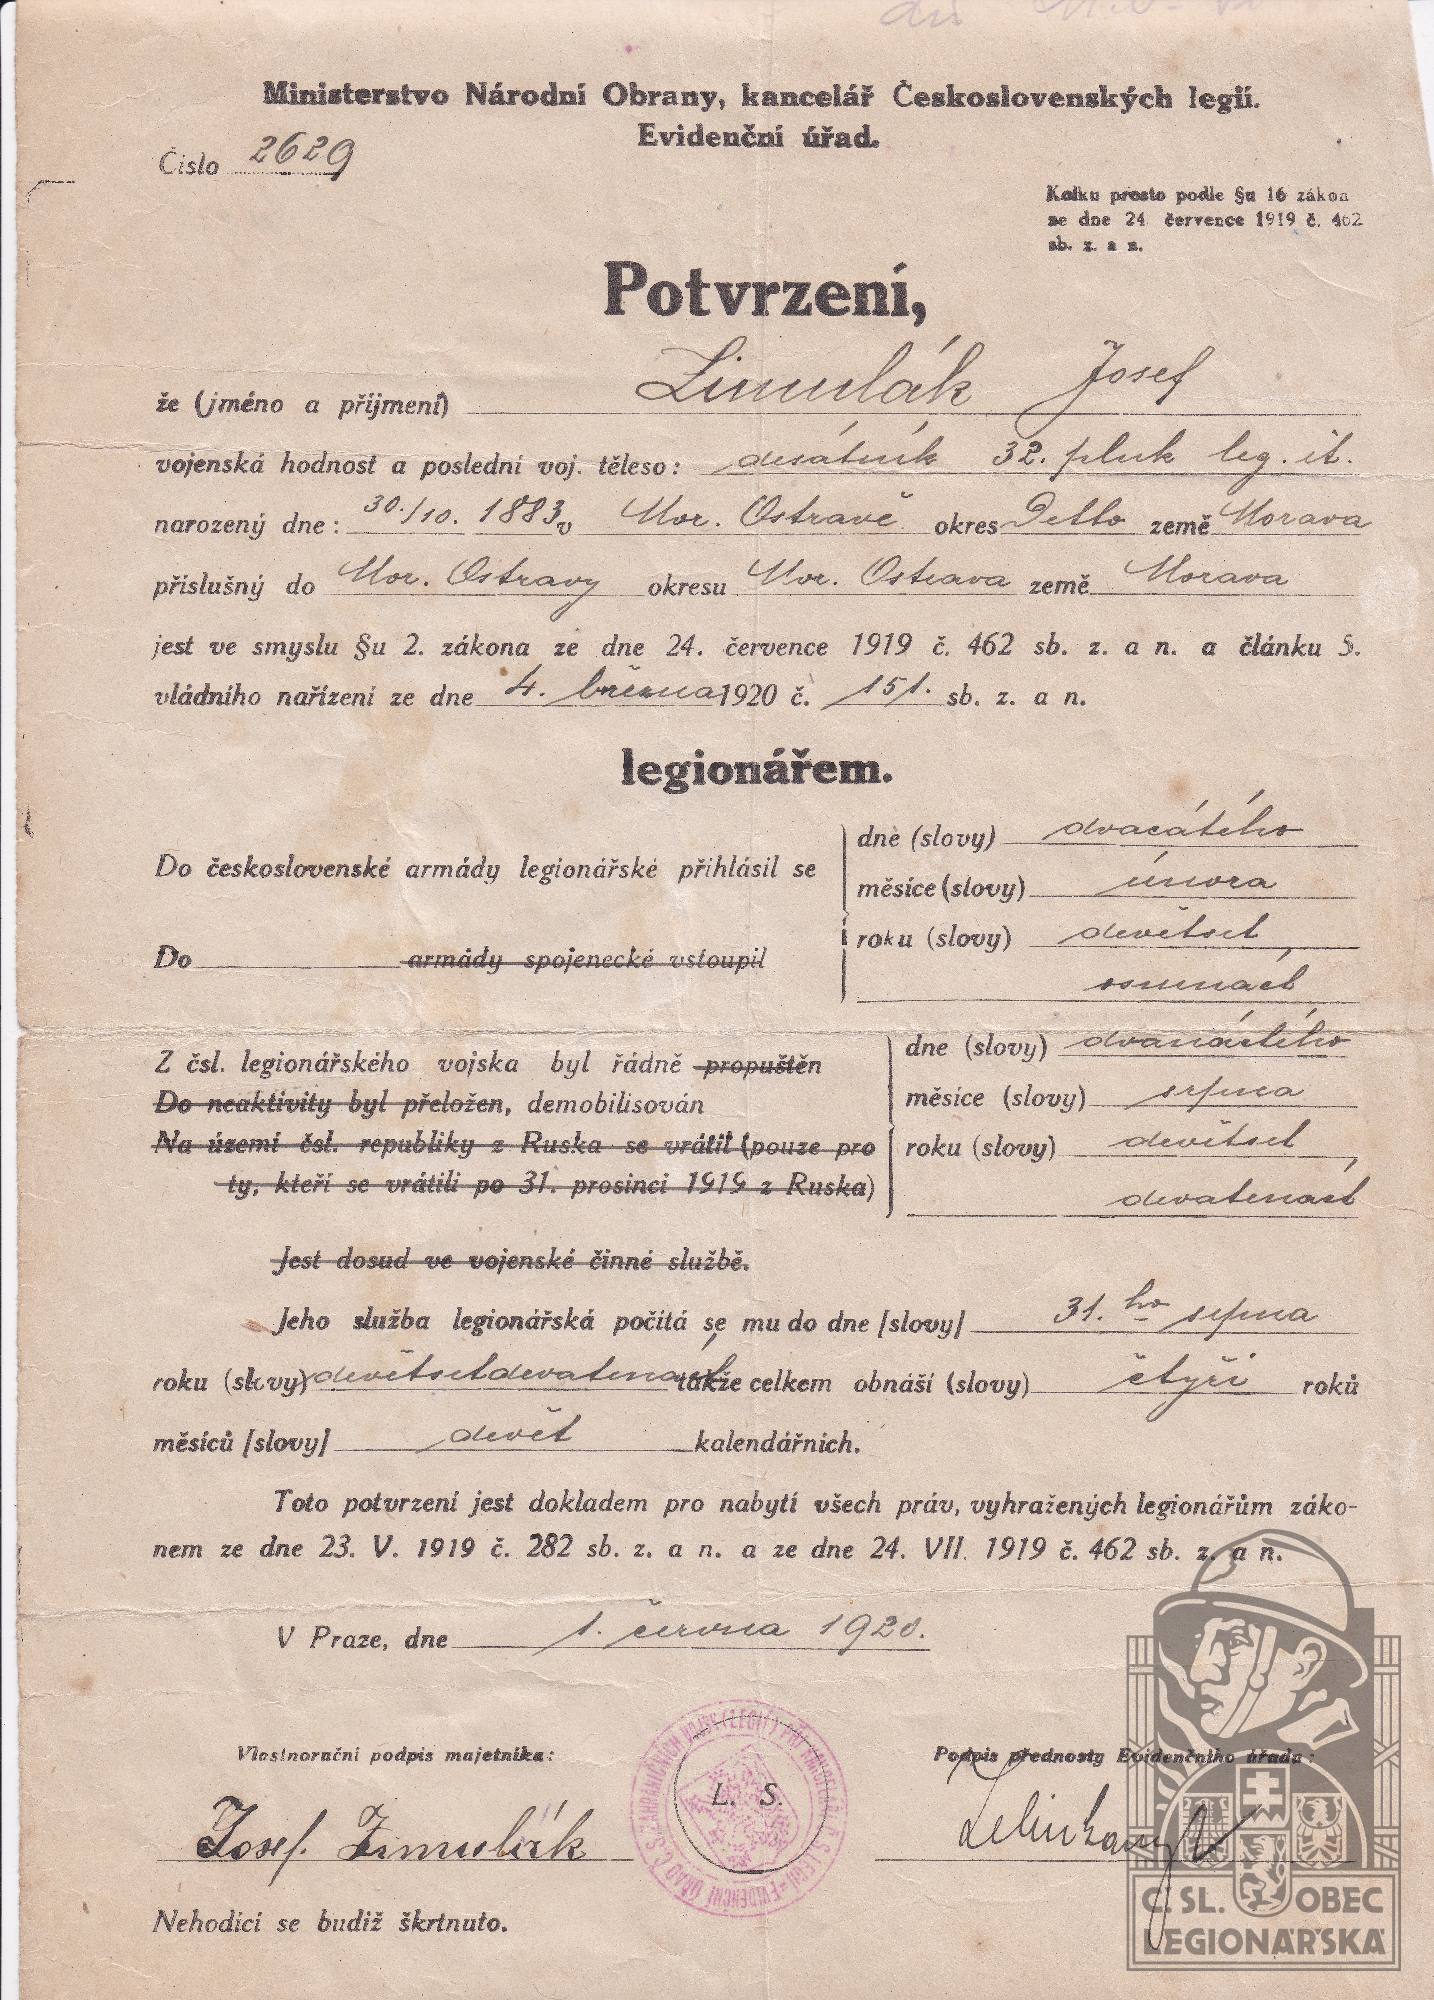 Ministerstvo Národní Obrany, kancelář Československých legií.
Evidenční úřad.
Číslo 2629
Kolku prosto podle §u 16 zákon
ze dne 24 července 1919 č. 462
sb. z. a n.
Potvrzení,
že (jméno a příjmení) Zimulák Josef
vojenská hodnost a poslední voj. těleso: desátník 32. pluk leg. it.
narozený dne: 30./10. 1883 v Mor. Ostravě okres Detto země Morava
příslušný do Mor. Ostravy okresu Mor. Ostrava země Morava
jest ve smyslu §u 2. zákona ze dne 24. července 1919 č. 462 sb. z. a n. a článku 5.
vládního nařízení ze dne 4. března 1920 č. 151. sb. z. a n.
legionářem.
Do československé armády legionářské přihlásil se
dne (slovy) dvacátého
měsíce (slovy) února
roku (slovy) devětset
osmnáct
Do armády spojenecké vstoupil
Z čsl. legionářského vojska byl řádně propuštěn
Do neaktivity byl přeložen, demobilisován
Na území čsl. republiky z Ruska se vrátil (pouze pro
ty, kteří se vrátili po 31. prosinci 1919 z Ruska)
dne (slovy) dvanáctého
měsíce (slovy) srpna
roku (slovy) devětset
devatenáct
Jest dosud ve vojenské činné službě.
Jeho služba legionářská počítá se mu do dne [slovy] 31. ho srpna
roku (slovy) devětsetdevatenáct takže celkem obnáší (slovy) čtyři roků
měsíců [slovy] devět kalendářních.
Toto potvrzení jest dokladem pro nabytí všech práv, vyhražených legionářům záko-
nem ze dne 23. V. 1919 č. 282 sb. z. a n. a ze dne 24. VII. 1919 č. 462 sb. z. a n.
V Praze, dne 1. června 1920.
Vlastnoruční podpis majetníka:
Podpis přednosty Evidenčního úřadu:
L. S.
Josef Zimulák
Nehodící se budiž škrtnuto.
Č. SL. OBEC
LEGIONÁŘSKÁ